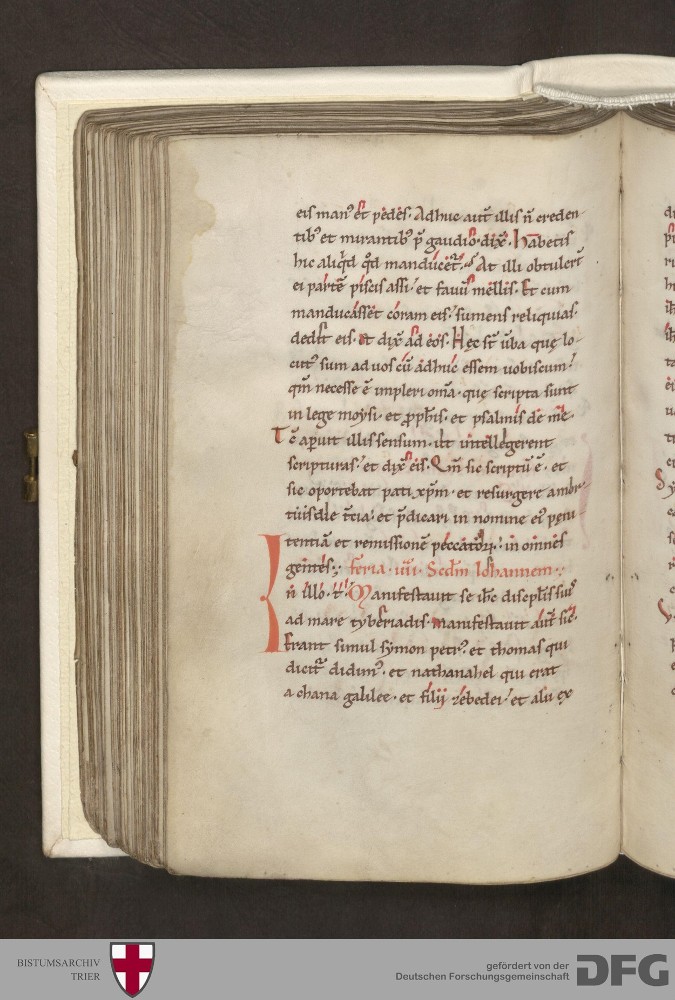 eis man⁹ et pedes. Adhuc aut̄ illis n̄ creden-
tib⁹ et mirantib⁹ p̄ gaudio. dix̄. Habetis
hic aliq̇d qd̄ manducet̄ᷣ. At illi obtuler̄t
ei partē piscis assi. et fauū mellis. Et cum
manducasset coram eis. sumens reliquias.
dedit eis. et dix̄ ad eos. Hęc st̄ ūba quę lo-
cut⁹ sum ad uos cū adhuc essem uobiscum.
qm̄ necesse ē impleri om̄a. quę scripta sunt
in lege moysi. et ꝓph̄is. et psalmis de me.
Tc̄ aꝑuit illis sensum. ut intellegerent
scripturas. et dix̄ eis. Qm̄ sic scriptū ē. et
sic oportebat pati xp̄m. et resurgere a mor-
tuis die t̄cia. et p̄dicari in nomine ei⁹ peni-
tentiā et remissionē peccatoꝝ. in omnes
gentes. feria .iiii. Scdm̄ Iohannem.
In illo .t̄. Manifestauit se ih̄c discipl̄is suis
ad mare tyberiadis. manifestauit aut̄ sic.
Erant simul symon petr⁹. et thomas qui
dicit̄ᷣ didim⁹. et nathanahel qui erat
a chana galilee. et filij zebedei. et alii ex
BISTUMSARCHIV
TRIER
gefördert von der
Deutschen Forschungsgemeinschaft
DFG